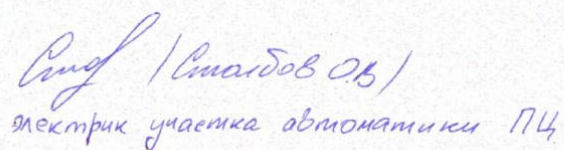 /Столбов О.В/
электрик участка автоматики ПЦ